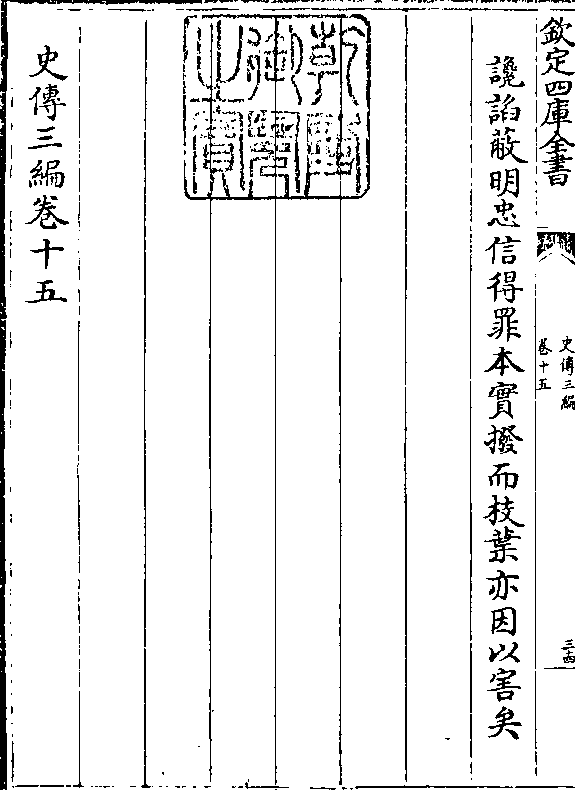 欽定四庫全書
史傳三編
卷十五
三四
讒諂蔽明忠信得罪本實撥而枝葉亦因以害矣
乾隆御覽之寶
史傳三編卷十五